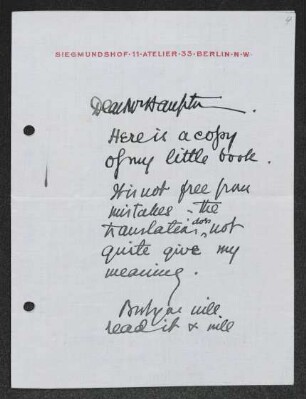 4
SIEGMUNDSHOF·11·ATELIER·33·BERLIN·N·W·
Dear Mr Hampton.
Here is a copy
of my little book.
It is not free from
mistakes - the
translation does not
quite give my
meaning.
But you will
read it & will